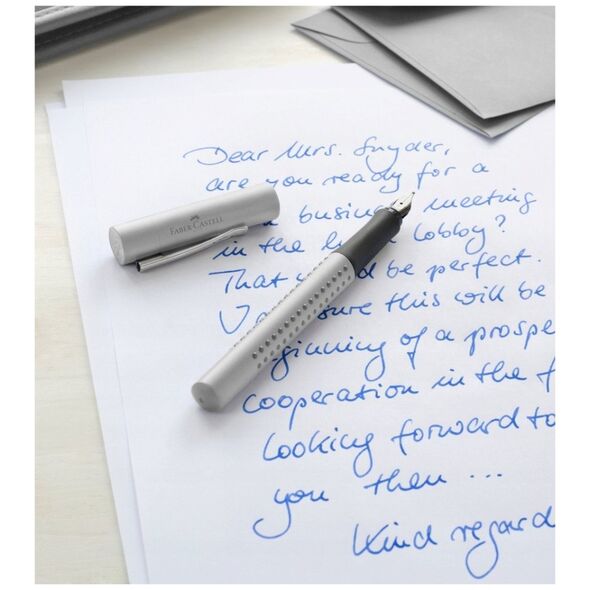 Dear Mrs. Snyder,
are you ready for a
business meeting
in the lobby?
FABER-CASTELL
That be perfect.
sure this will be
ginning of a prospe
cooperation in the f
looking forward to
you then ...
Kind regard